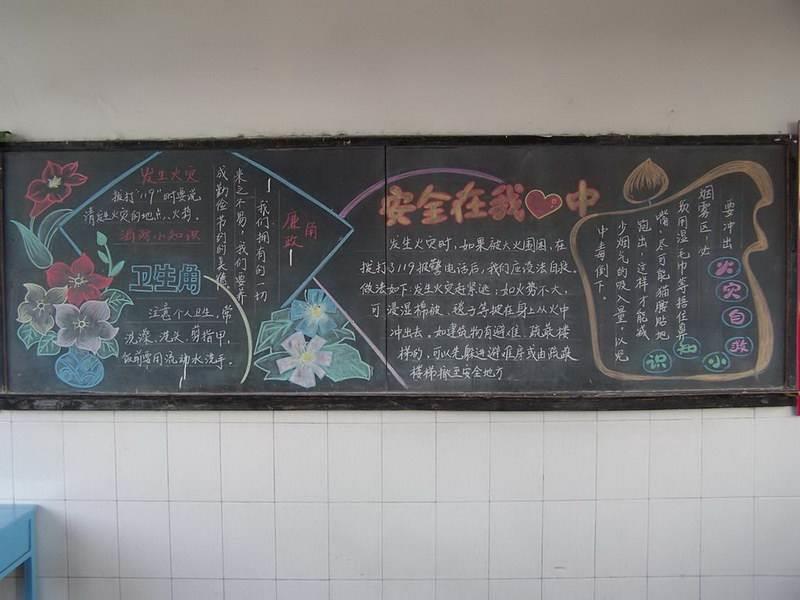 发生火灾
拨打"119"时要说
清发生火灾的地点、火势。
消防小知识
卫生角
注意个人卫生，常
洗澡、洗头、剪指甲，
饭前要用流动水洗手。
廉政角
我们拥有的一切
来之不易，我们要养
成勤俭节约的美德
安全在我心中
发生火灾时，如果被大火围困，在
拨打了119报警电话后，我们应设法自救。
做法如下：发生火灾赶紧逃；如火势不大，
可浸湿棉被、毯子等披在身上从火中
冲出去。如建筑物有避难、疏散楼
梯的，可以先躲进避难房或由疏散
楼梯撤至安全地方
要冲出
烟雾区，必
须用湿毛巾等捂住鼻
嘴，尽可能猫腰贴地
跑出，这样才能减
少烟气的吸入量，以免
中毒倒下。
火灾自救
小知识